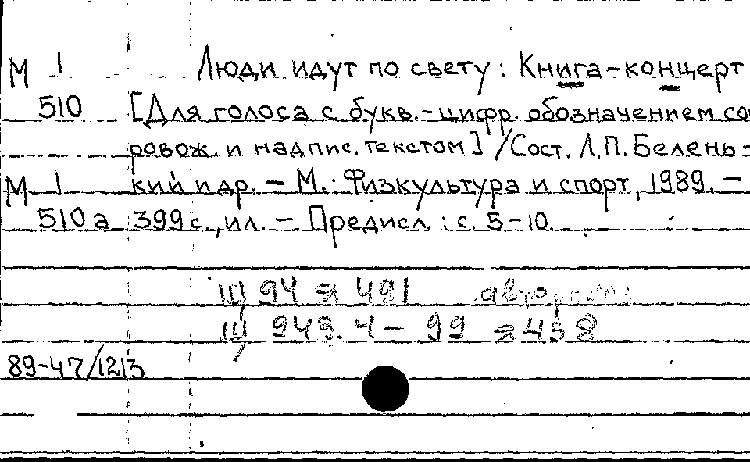 М 1 Люди идут по свету : Книга-концерт
510 [Для голоса с букв.-цифр. обозначением со
ровож. и надпис. текстом] / Сост. Л.П. Белень-
М 1 кий и др. – М. : Физкультура и спорт, 1989. –
510 а 399 с., ил. – Предисл. : с. 5-10.
Ц 94 я 491
Ц 949. 4 – 99 я 458
89-47/1213